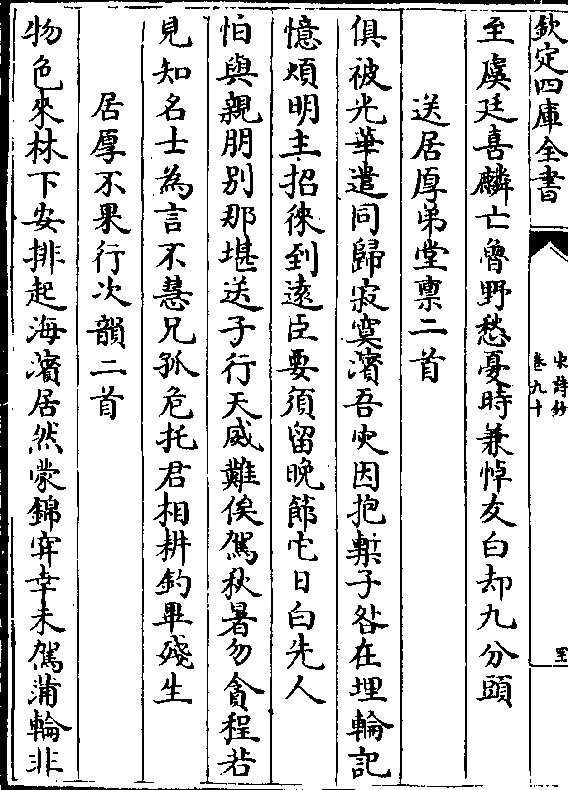 欽定四庫全書
宋詩鈔
卷九十
至
至虞廷喜麟亡魯野愁憂時兼悼友白却九分頭
送居厚弟堂稟二首
俱被光華遣同歸寂寞濱吾灾因抱槧子咎在埋輪記
憶煩明主招徠到遠臣要須留晩節它日白先人
怕與親朋別那堪送子行天威難俟駕秋暑勿貪程若
見知名士為言不慧兄孤危托君相耕釣畢殘生
居厚不果行次韻二首
物色來林下安排起海濱居然蒙錦穽幸未駕蒲輪非